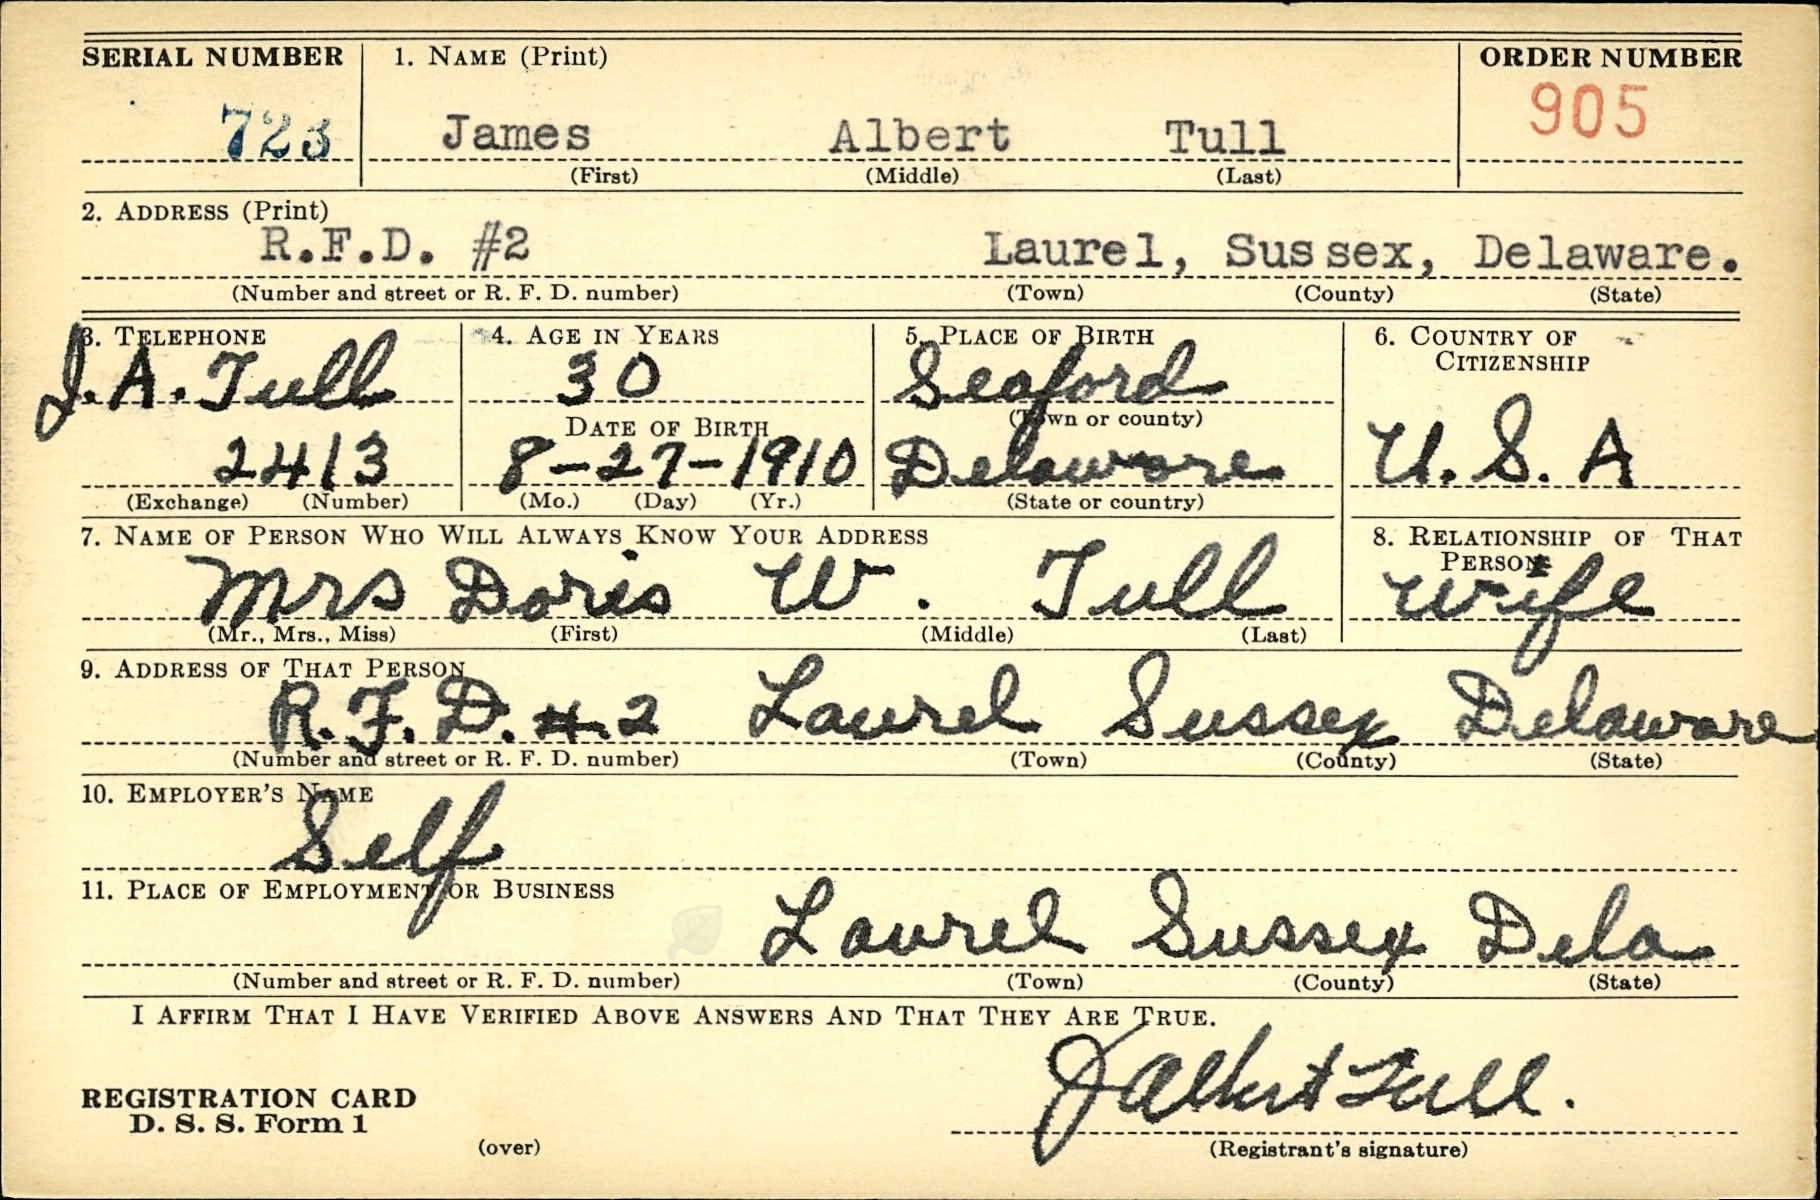 SERIAL NUMBER 1. NAME (Print) ORDER NUMBER
723 James Albert Tull 905
(First) (Middle) (Last)
2. ADDRESS (Print)
R.F.D. #2 Laurel, Sussex, Delaware.
(Number and street or R. F. D. number) (Town) (County) (State)
3. TELEPHONE 4. AGE IN YEARS 5. PLACE OF BIRTH 6. COUNTRY OF
CITIZENSHIP
J.A. Tull 30 Seaford
DATE OF BIRTH (Town or county)
2413 8-27-1910 Delaware U.S.A
(Exchange) (Number) (Mo.) (Day) (Yr.) (State or country)
7. NAME OF PERSON WHO WILL ALWAYS KNOW YOUR ADDRESS 8. RELATIONSHIP OF THAT
PERSON
Mrs Doris W. Tull Wife
(Mr., Mrs., Miss) (First) (Middle) (Last)
9. ADDRESS OF THAT PERSON
R.F.D. #2 Laurel Sussex Delaware
(Number and street or R. F. D. number) (Town) (County) (State)
10. EMPLOYER'S NAME
Self
11. PLACE OF EMPLOYMENT OR BUSINESS
Laurel Sussex Dela
(Number and street or R. F. D. number) (Town) (County) (State)
I AFFIRM THAT I HAVE VERIFIED ABOVE ANSWERS AND THAT THEY ARE TRUE.
J Albert Tull.
REGISTRATION CARD
D. S. S. Form 1
(over) (Registrant's signature)